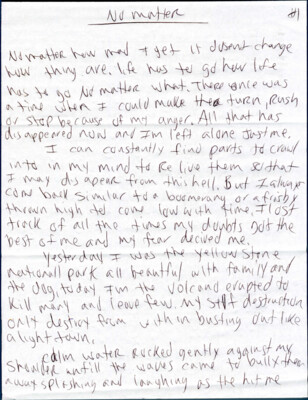 No matter
#1
No matter how mad I get it dosent change
how thing are. life has to go how life
has to go No matter what. There once was
a time when I could make them turn, Rush
or stop because of my anger. All that has
disappeared now and I'm left alone Just me.
I can constantly find parts to crawl
into in my mind to Re live them so that
I may disapear from this hell. But I always
come back similar to a boomerang or a frisby
thrown high ted come low with time. I lost
track of all the times my doubts got the
best of me and my fear decived me.
Yesterday I was the yellow stone
nationall park all beautful with family and
the dog, today I'm the volcano erupted to
kill many and leave few. My self destruction
only destroy from with in busting out like
a light down.
calm water Rocked gently against my
shoulder untill the waves came to bully them
away splitshing and laughing as the hit me